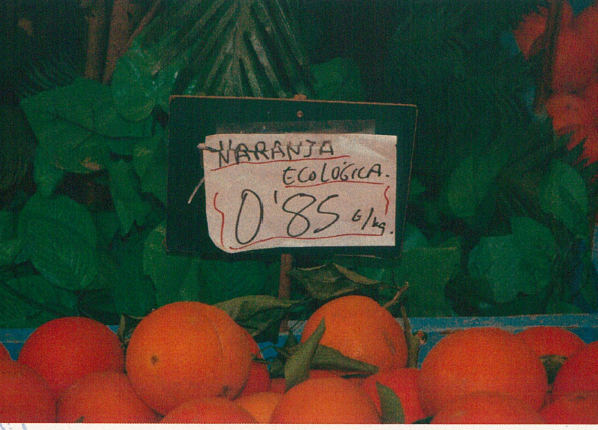 NARANJA
ECOLÓGICA.
0'85 €/kg.